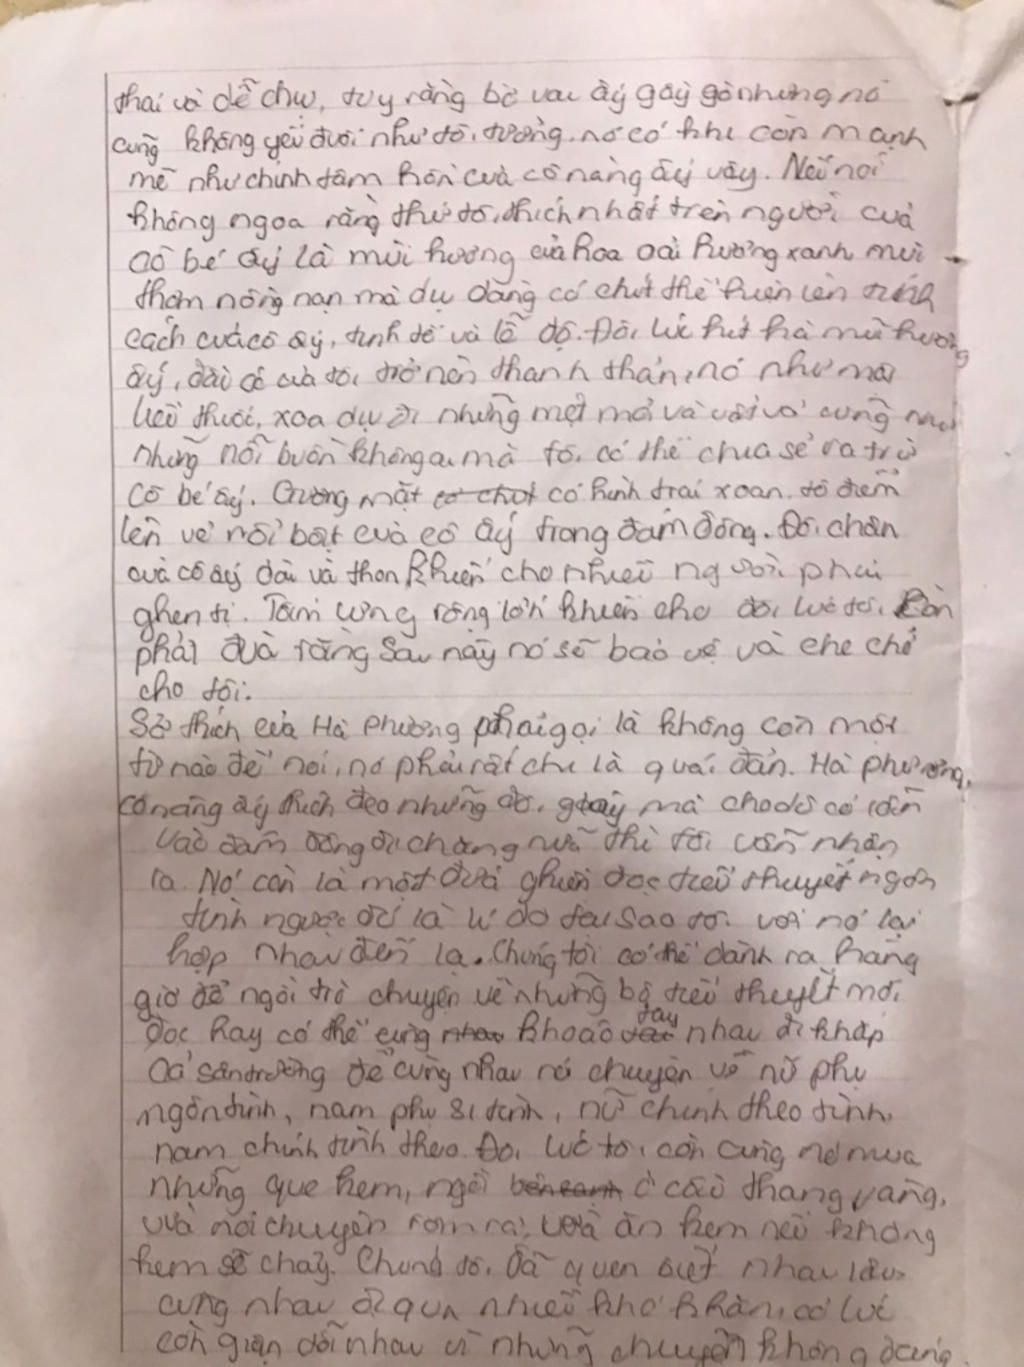 thai và dễ chịu, tuy rằng bờ vai ấy gầy gò nhưng nó
cũng không yếu đuối như tôi tưởng. nó có khi còn mạnh
mẽ như chính tâm hồn của cô nàng ấy vậy. Nếu nói
không ngoa rằng thứ tôi thích nhất trên người của
cô bé ấy là mùi hương của hoa oải hương xanh mùi
thơm nồng nạn mà dịu dàng có chút thể hiện lên tính
cách của cô ấy, tinh tế và lễ độ. Đôi lúc hít hà mùi hương
ấy, đầu óc của tôi trở nên thanh thản, nó như một
liều thuốc, xoa dịu đi những mệt mỏi và vất vả cũng như
những nỗi buồn không ai mà tôi có thể chia sẻ ra trừ
cô bé ấy. Gương mặt có chút có hình trái xoan. tô điểm
lên vẻ nổi bật của cô ấy trong đám đông. Đôi chân
của cô ấy dài và thon khiến cho nhiều người phải
ghen tị. Tấm lưng rộng lớn khiến cho đôi lúc tôi còn
phải đùa rằng sau này nó sẽ bảo vệ và che chở
cho tôi.
Sở thích của Hà Phương phải gọi là không còn một
từ nào để nói, nó phải rất chi là quái đản. Hà phương,
cô nàng ấy thích đeo những đôi giày mà cho dù có lẫn
vào đám đông đi chăng nữa thì tôi vẫn nhận
ra. Nó còn là một đứa ghiền đọc tiểu thuyết ngôn
tình ngược đó là lí do tại sao tôi với nó lại
hợp nhau đến lạ. Chúng tôi có thể dành ra hàng
giờ để ngồi trò chuyện về những bộ tiểu thuyết mới
đọc hay có thể cùng nhau khoác tay nhau đi khắp
cả sân trường để cùng nhau nói chuyện về nữ phụ
ngôn tình, nam phụ si tình, nữ chính theo tình,
nam chính tình theo. Đôi lúc tôi còn cùng nó mua
những que kem, ngồi bên cạnh ở cầu thang vắng,
vừa nói chuyện rôm rả, vừa ăn kem nếu không
kem sẽ chảy. Chúng tôi đã quen biết nhau lâu,
cùng nhau đi qua nhiều khó khăn, có lúc
còn giận dỗi nhau vì những chuyện không đáng